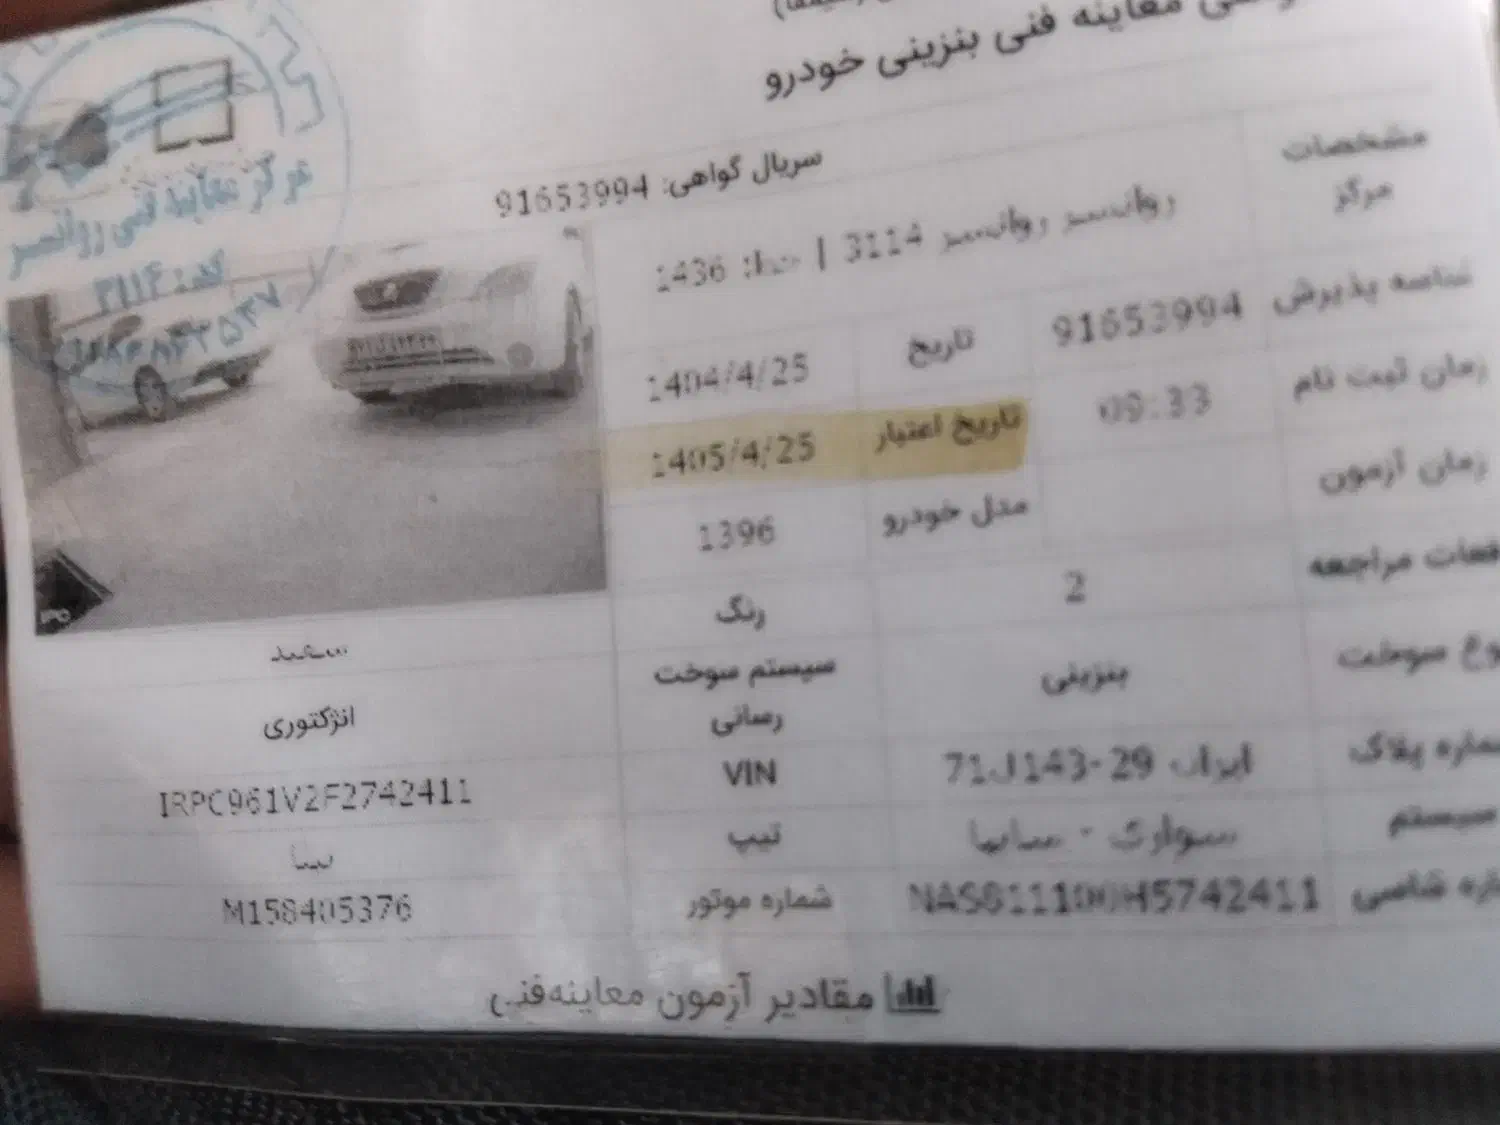 معاینه فنی بنزینی خودرو
سریال گواهی: 91653994
مشخصات مرکز
روانسر روانسر 3114 | خط: 1436
شناسه پذیرش 91653994 تاریخ 1404/4/25
زمان ثبت نام 09:33 تاریخ اعتبار 1405/4/25
زمان آزمون مدل خودرو 1396
مراجعه 2 رنگ سفید
سوخت بنزینی سیستم سوخت رسانی انژکتوری
پلاک ایران 29-71J143 VIN IRPC961V2F2742411
سیستم سواری - سایپا تیپ تیبا
شاسی NAS811100H5742411 شماره موتور M158405376
مقادیر آزمون معاینه‌فنی
مرکز معاینه فنی روانسر
کد: ۳۱۱۴
IPC